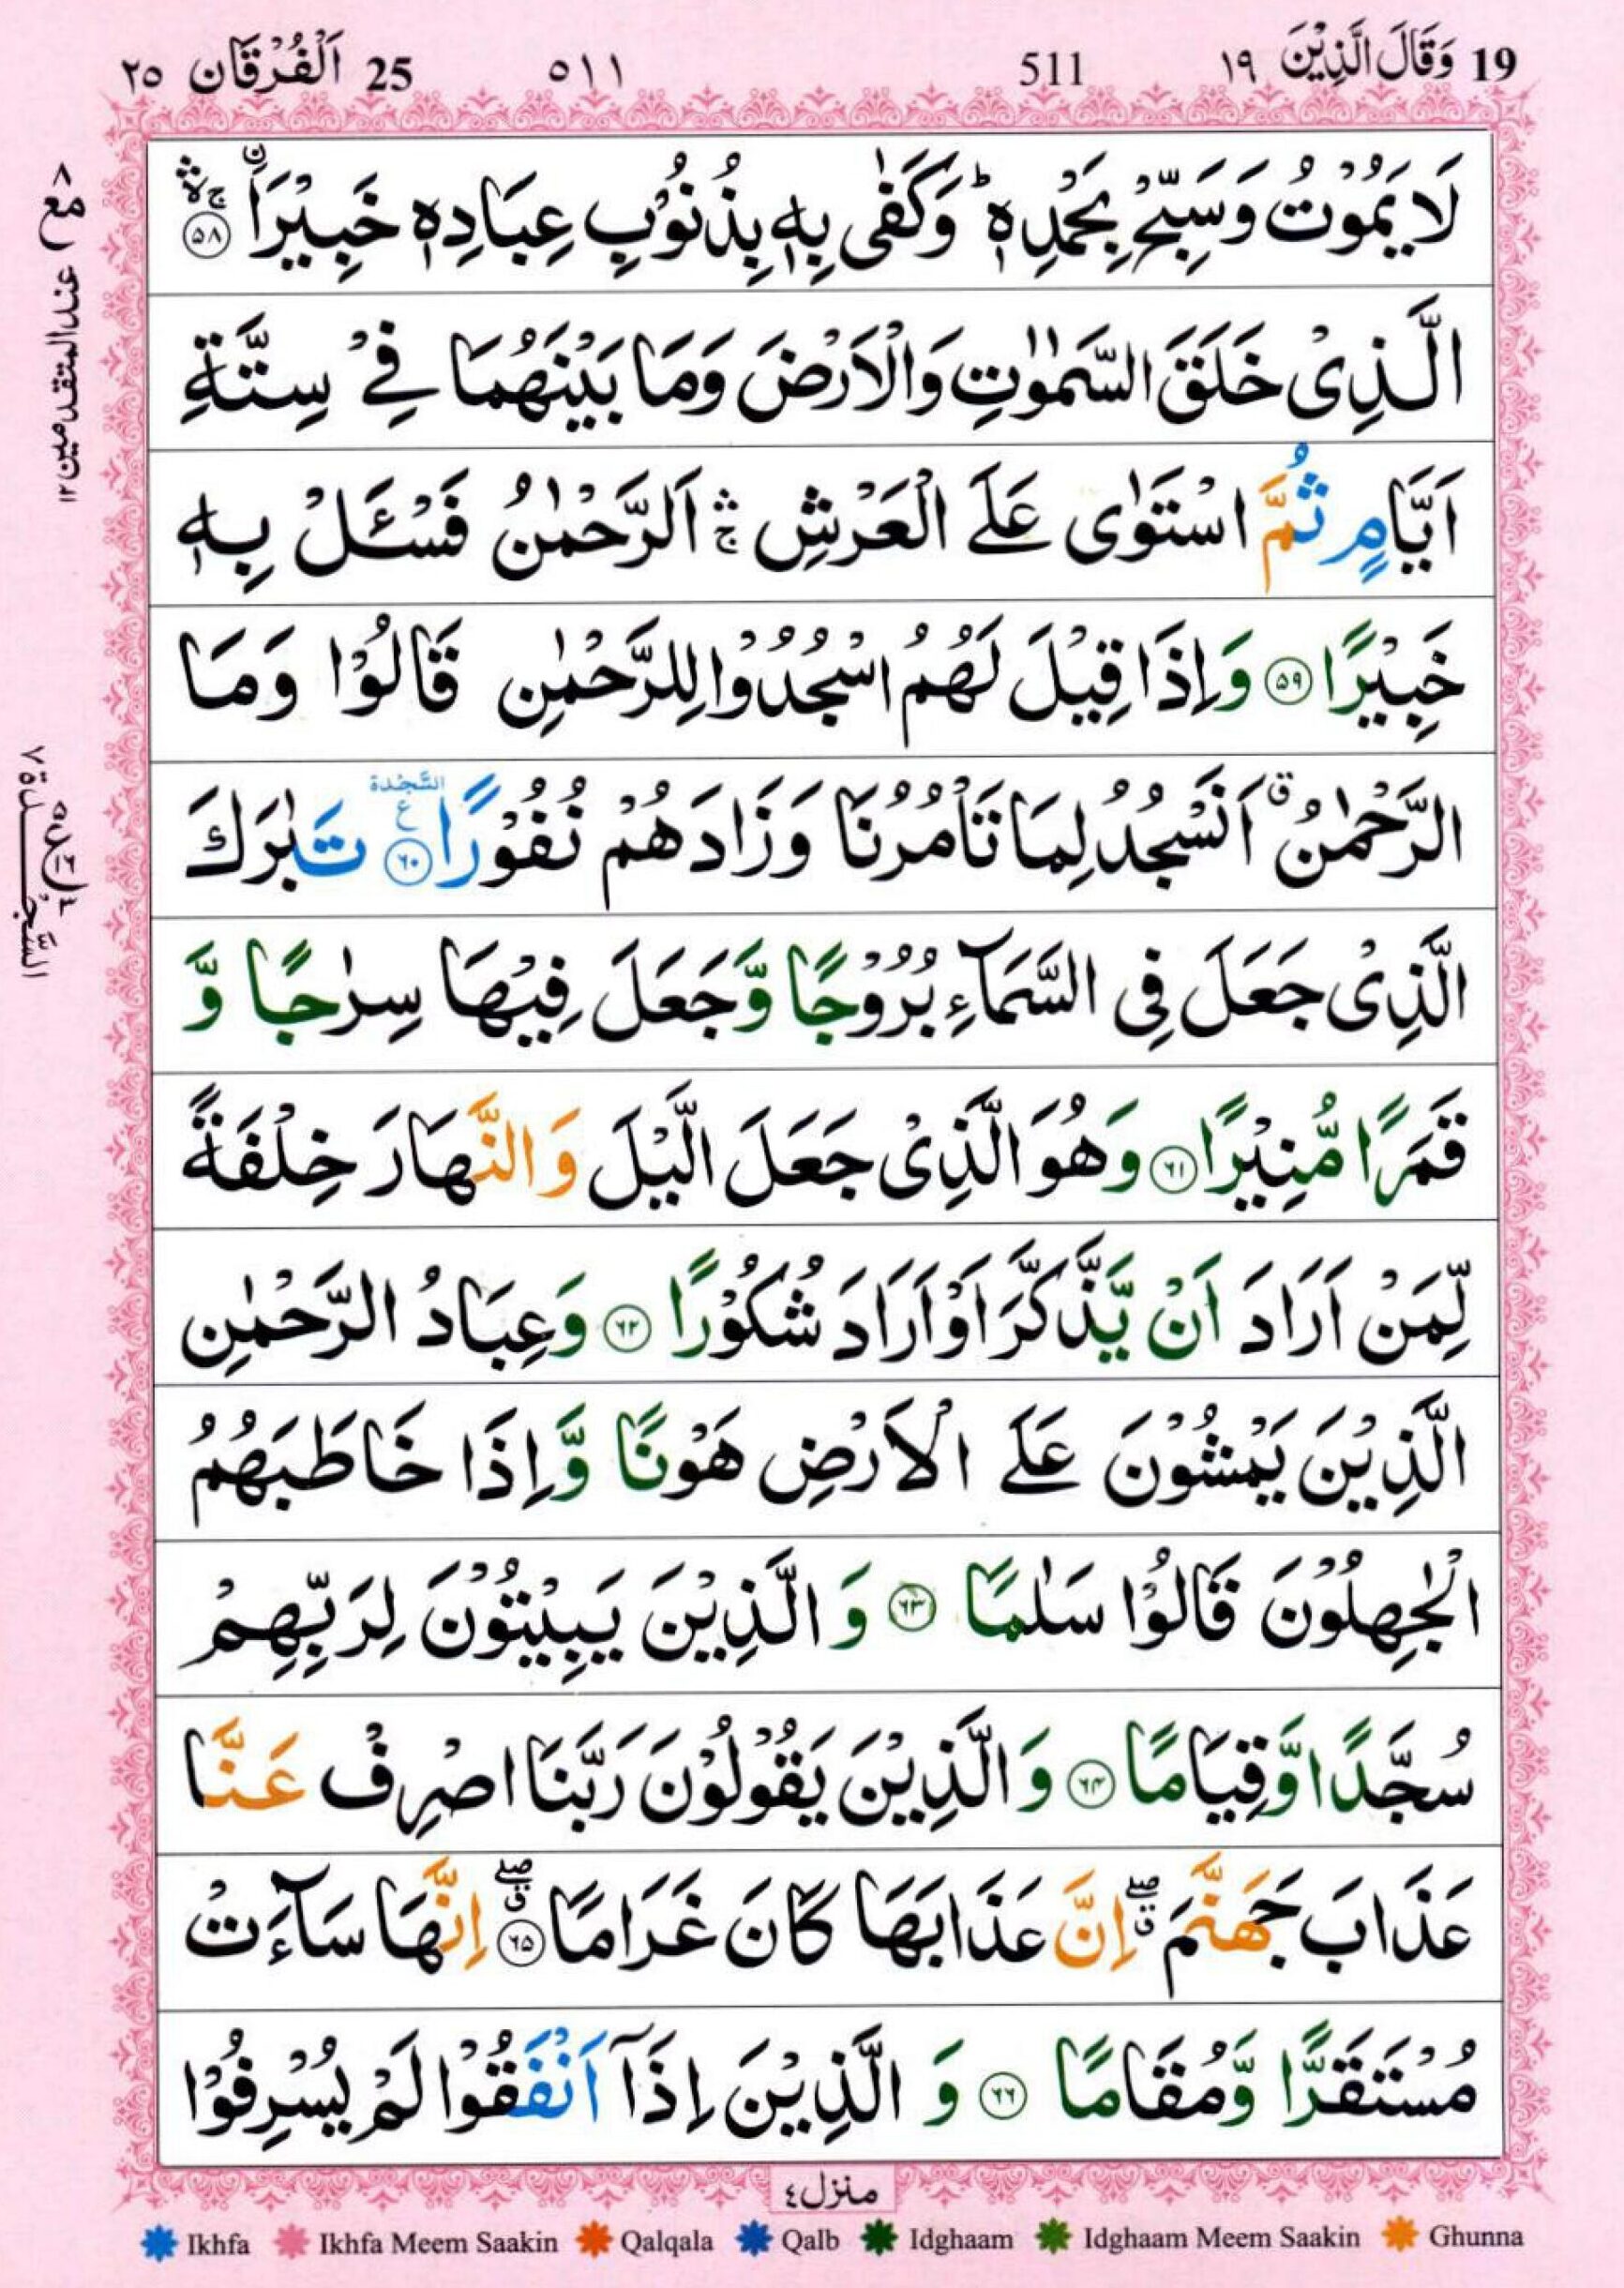 19 وَقَالَ الَّذِیْنَ ١٩ 511 ٥١١ 25 اَلْفُرْقَان ٢٥
لَا یَمُوْتُ وَسَبِّحْ بِحَمْدِهٖ ؕ وَكَفٰی بِهٖ بِذُنُوْبِ عِبَادِهٖ خَبِیْرَاۨ ۚۛۙ ﴿٥٨﴾
الَّذِیْ خَلَقَ السَّمٰوٰتِ وَالْاَرْضَ وَمَا بَیْنَهُمَا فِیْ سِتَّةِ
اَیَّامٍ ثُمَّ اسْتَوٰی عَلَی الْعَرْشِ ۚۛ اَلرَّحْمٰنُ فَسْـَٔلْ بِهٖ
خَبِیْرًا ﴿٥٩﴾ وَاِذَا قِیْلَ لَهُمُ اسْجُدُوْا لِلرَّحْمٰنِ قَالُوْا وَمَا
الرَّحْمٰنُ ۗ اَنَسْجُدُ لِمَا تَاْمُرُنَا وَزَادَهُمْ نُفُوْرًا ﴿٦٠﴾ السَّجْدَة ع تَبٰرَكَ
الَّذِیْ جَعَلَ فِی السَّمَآءِ بُرُوْجًا وَّجَعَلَ فِیْهَا سِرٰجًا وَّ
قَمَرًا مُّنِیْرًا ﴿٦١﴾ وَهُوَ الَّذِیْ جَعَلَ الَّیْلَ وَالنَّهَارَ خِلْفَةً
لِّمَنْ اَرَادَ اَنْ یَّذَّكَّرَ اَوْ اَرَادَ شُكُوْرًا ﴿٦٢﴾ وَعِبَادُ الرَّحْمٰنِ
الَّذِیْنَ یَمْشُوْنَ عَلَی الْاَرْضِ هَوْنًا وَّاِذَا خَاطَبَهُمُ
الْجٰهِلُوْنَ قَالُوْا سَلٰمًا ﴿٦٣﴾ وَالَّذِیْنَ یَبِیْتُوْنَ لِرَبِّهِمْ
سُجَّدًا وَّقِیَامًا ﴿٦٤﴾ وَالَّذِیْنَ یَقُوْلُوْنَ رَبَّنَا اصْرِفْ عَنَّا
عَذَابَ جَهَنَّمَ ۖۗ اِنَّ عَذَابَهَا كَانَ غَرَامًا ۖۗ ﴿٦٥﴾ اِنَّهَا سَآءَتْ
مُسْتَقَرًّا وَّمُقَامًا ﴿٦٦﴾ وَالَّذِیْنَ اِذَاۤ اَنْفَقُوْا لَمْ یُسْرِفُوْا
منزل٤
Ikhfa Ikhfa Meem Saakin Qalqala Qalb Idghaam Idghaam Meem Saakin Ghunna
مع ٨ عند المتقدمين ١٢
السَّجْدَة ٧